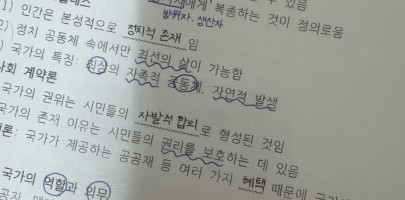 에게 복종하는 것이 정의로움
방위자. 생산자
1) 인간은 본성적으로 정치적 존재 임
2) 정치 공동체 속에서만 최선의 삶이 가능함
국가의 특징: 최상의 자족적 공동체. 자연적 발생
사회 계약론
국가의 권위는 시민들의 자발적 합의로 형성된 것임
국가의 존재 이유는 시민들의 권리를 보호하는 데 있음
론: 국가가 제공하는 공공재 등 여러 가지 혜택 때문에
국가의 역할과 의무